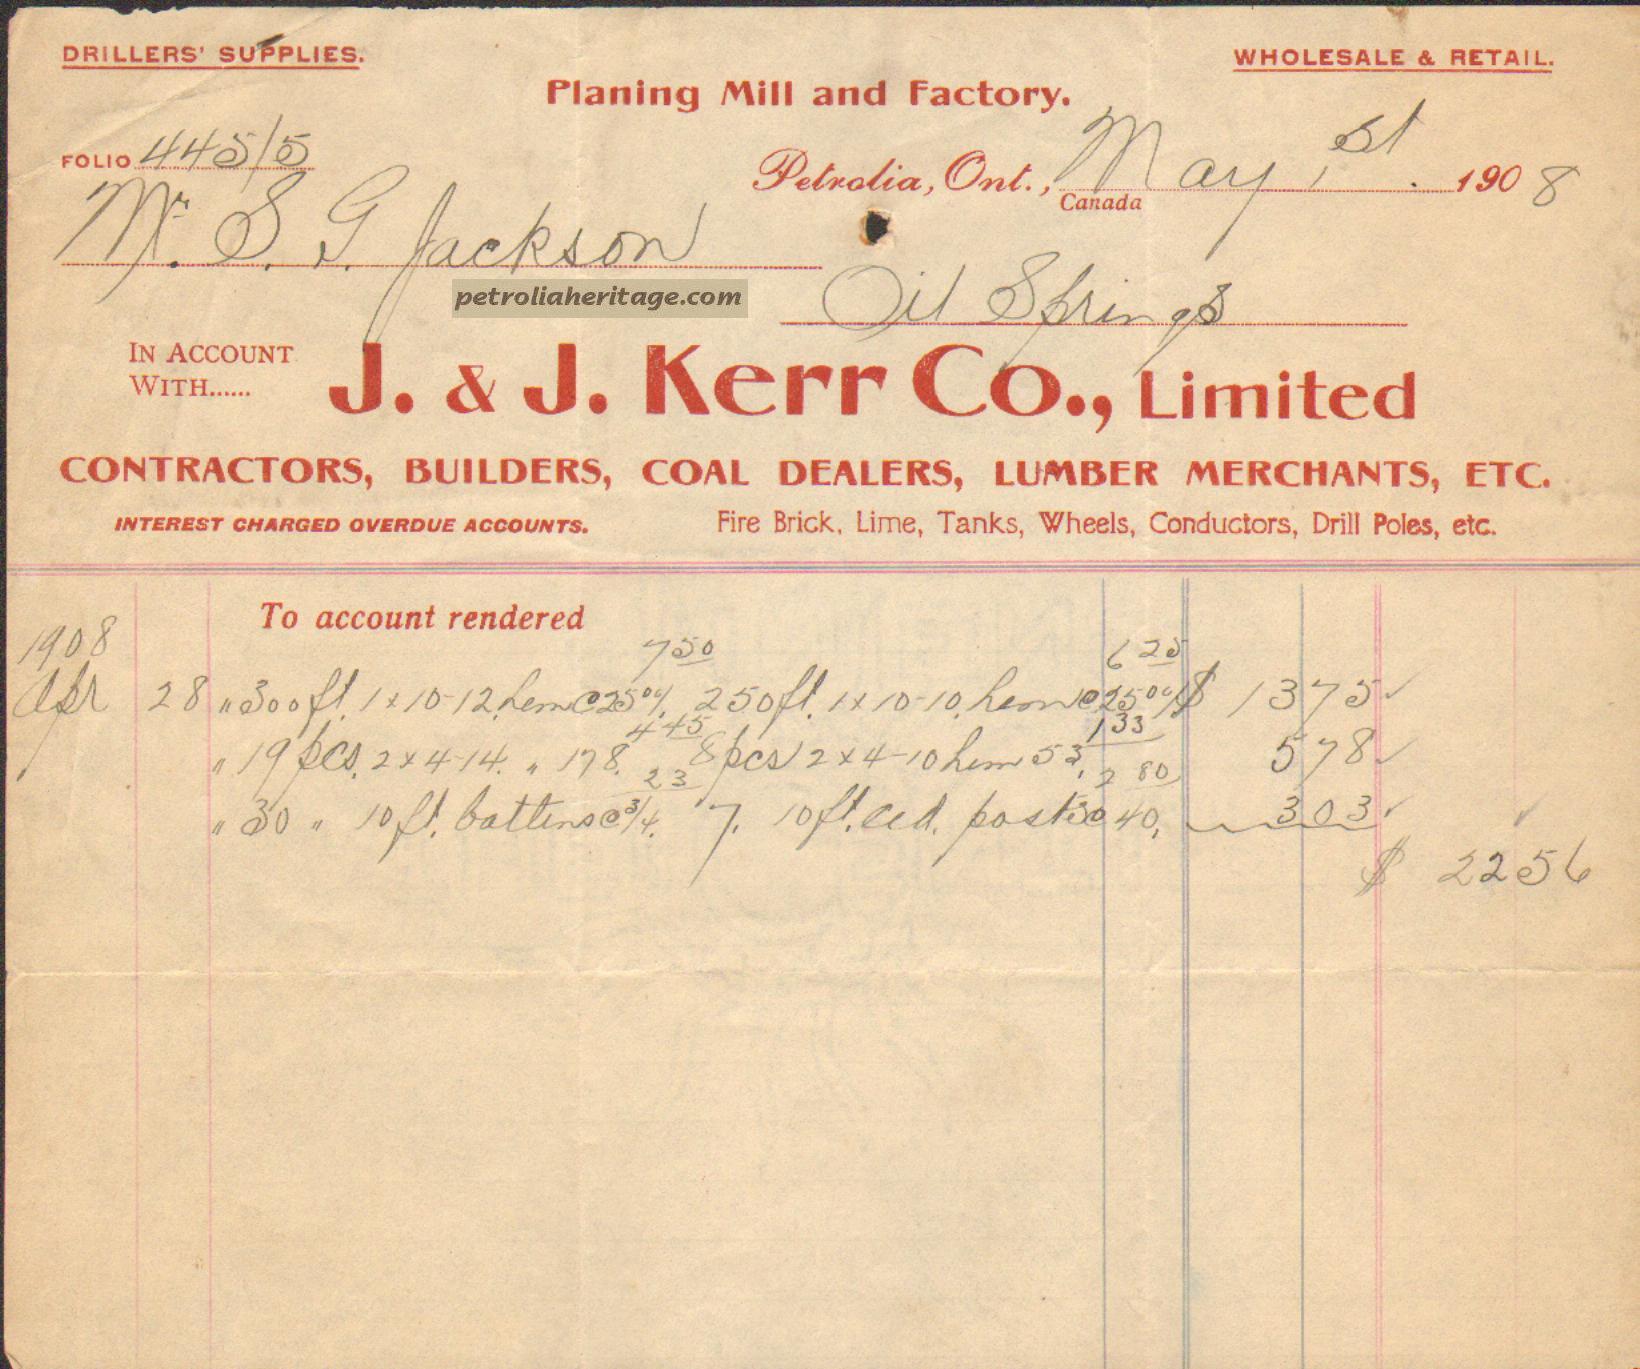 DRILLERS' SUPPLIES.
WHOLESALE & RETAIL.
Planing Mill and Factory.
FOLIO 445/5
Petrolia, Ont., Canada May 1st 1908
Mr. S. G. Jackson
petroliaheritage.com
Oil Springs
IN ACCOUNT WITH...... J. & J. Kerr Co., Limited
CONTRACTORS, BUILDERS, COAL DEALERS, LUMBER MERCHANTS, ETC.
INTEREST CHARGED OVERDUE ACCOUNTS.
Fire Brick, Lime, Tanks, Wheels, Conductors, Drill Poles, etc.
To account rendered
1908
7 50 6 25
Apr 28 " 300 ft. 1 x 10-12 hem @ 25 00/ 250 ft. 1 x 10-10 hem @ 25 00/ $ 13 75 ✓
4 45 1 33
" 19 pcs. 2 x 4-14. " 178. 8 pcs 2 x 4-10 hem 53. 5 78 ✓
23 2 80
" 30 " 10 ft. battens @ 3/4. 7. 10 ft. ced. posts @ 40. 3 03 ✓ ✓
$ 22 56